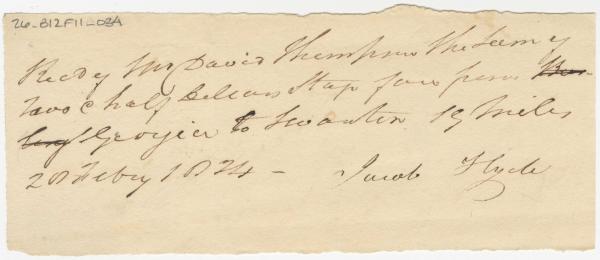 26-B12F11-03A
Recd of Mr David Thompson the Sum of
two & half Dollars Stage fare from
Georgia to Swanton 19 miles
20 Feby 1824 - Jacob Hyde